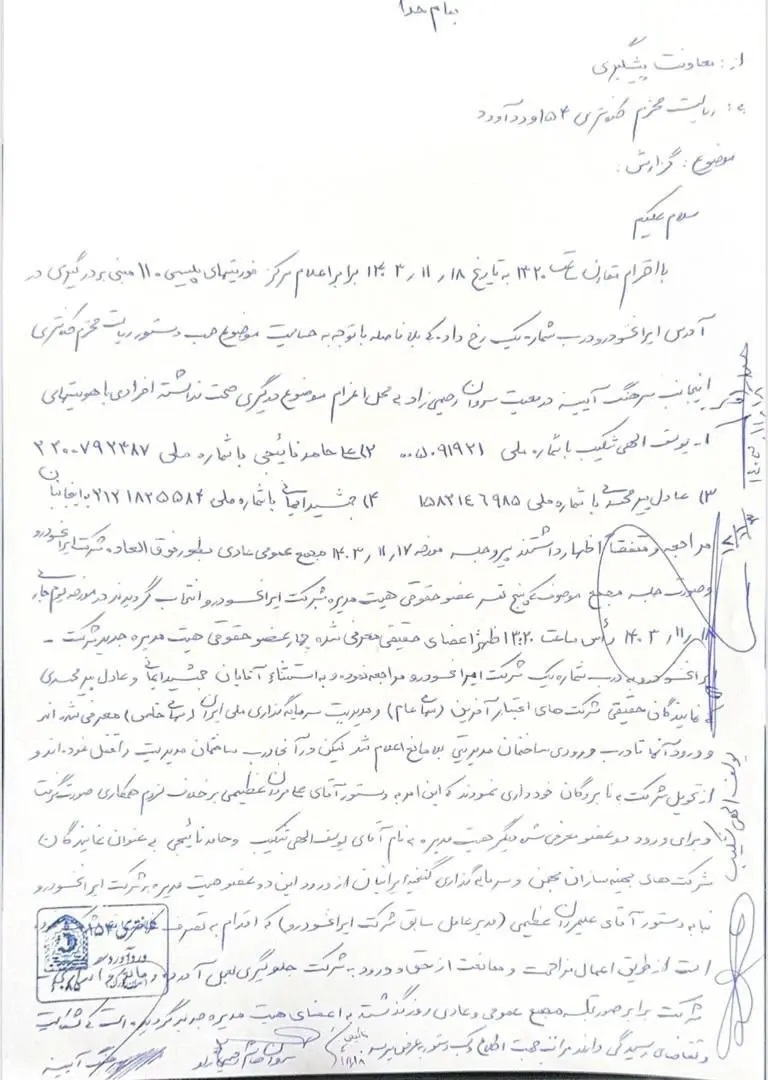 بنام خدا
از: معاونت پیشگیری
به: ریاست محترم کلانتری ۱۵۴ وردآورد
موضوع: گزارش:
سلام علیکم
با احترام مقارن ساعت ۱۳۲۰ به تاریخ ۱۴۰۳٫۱۱٫۱۸ برابر اعلام مرکز فوریتهای پلیسی ۱۱۰ مبنی بر درگیری در
آدرس ایرانخودرو درب شماره یک رخ داده که بلافاصله با توجه به حساسیت موضوع حسب دستور ریاست محترم کلانتری
اینجانب سرهنگ آیینه در معیت سروان رحیمی‌راد به محل اعزام موضوع درگیری صحت نداشته افرادی با هویتهای
۱- یوسف الهی شکیب با شماره ملی ۰۰۵۰۹۱۹۲۱ ۲) حامد نائیجی با شماره ملی ۲۲۰۰۷۹۲۴۸۷
۳) عادل پیرمحمدی با شماره ملی ۱۵۸۲۱۴۶۹۸۵ ۴) جمشید ایمانی با شماره ملی ۲۱۲۱۸۲۵۵۸۴ به اینجانبان
مراجعه و متفقاً اظهار داشتند پیرو جلسه مورخه ۱۴۰۳٫۱۱٫۱۷ مجمع عمومی عادی بطور فوق العاده شرکت ایرانخودرو
و صورت جلسه مجمع موصوف که پنج نفر عضو حقوقی هیت مدیره شرکت ایرانخودرو انتخاب گردیدند در مورخه یوم جاری
۱۴۰۳٫۱۱٫۱۸ رأس ساعت ۱۳:۲۰ ظهر اعضای حقیقی معرفی شده چهار عضو حقوقی هیت مدیره جدید شرکت -
ایرانخودرو به درب شماره یک شرکت ایرانخودرو مراجعه نموده و به استثناء آقایان جمشید ایمانی و عادل پیرمحمدی
که نمایندگان حقیقی شرکت های اعتبار آفرین (سهامی عام) و مدیریت سرمایه گذاری ملی ایران (سهامی خاص) معرفی شده اند
و ورود آنها تا درب ورودی ساختمان مدیریتی بلامانع اعلام شد لیکن در آنجا درب ساختمان مدیریت را قفل نموده‌اند و
از تحویل شرکت به نامبردگان خودداری نمودند که این امر به دستور آقای علیمردان عظیمی بر خلاف لزوم همکاری صورت گرفت
و برای ورود دو عضو معرفی شده دیگر هیت مدیره به نام آقای یوسف الهی شکیب و حامد نائیجی به عنوان نمایندگان
شرکت های سرمایه گذاری گنجینه ایرانیان از ورود این دو عضو هیت مدیره به شرکت ایرانخودرو
بنا به دستور آقای علیمردان عظیمی (مدیرعامل سابق شرکت ایرانخودرو) که اقدام به تصرف
است از طریق اعمال مزاحمت و ممانعت از حق و ورود به شرکت جلوگیری بعمل آمده
شرکت برابر صورتجلسه مجمع عمومی و عادی روز گذشته به اعضای هیت مدیره جدید گردیده است که شکایت
و تقاضای رسیدگی دارند مراتب جهت اطلاع و کسب دستور بعرض میرسد
سرهنگ آیینه
کلانتری ۱۵۴
وردآورد
یوسف الهی شکیب
۱۴۰۳٫۱۱٫۱۸